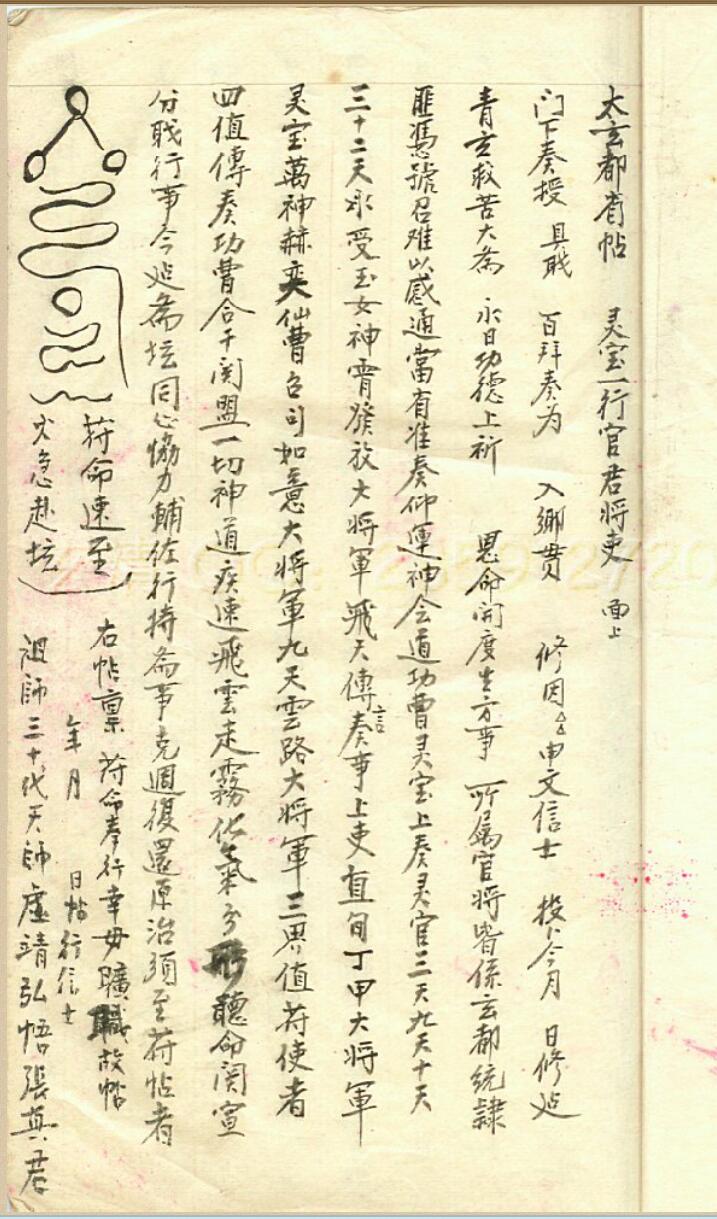 太玄都省帖 灵宝一行官君将吏 面上
门下奏授 具职 百拜奏为 入鄉贯 修因 申文信士 投卜今月 日修
青玄救苦大斋 永日功德上祈 恩命開度生方事 所属官將皆係玄都統隸
匪憑號召难以感通當有准奏仰運神会道功曹灵宝上奏灵官三天九天十天
三十二天承受玉女神霄發放大將軍飛天傳言奏事上吏直旬丁甲大將軍
灵宝萬神赫奕仙曹各司如意大將軍九天雲路大將軍三界值符使者
四值傳奏功曹合干関盟一切神道疾速飛雲走霧化氣分形聽命関宣
分職行事今 斋坛同心協力輔佐行持斋事克週復還原治須至符帖者
符命速至
火急赴坛
右帖禀 符命奉行幸毋曠職故帖
年 月 日帖行信士
祖師三十代天師虛靖弘悟張真君